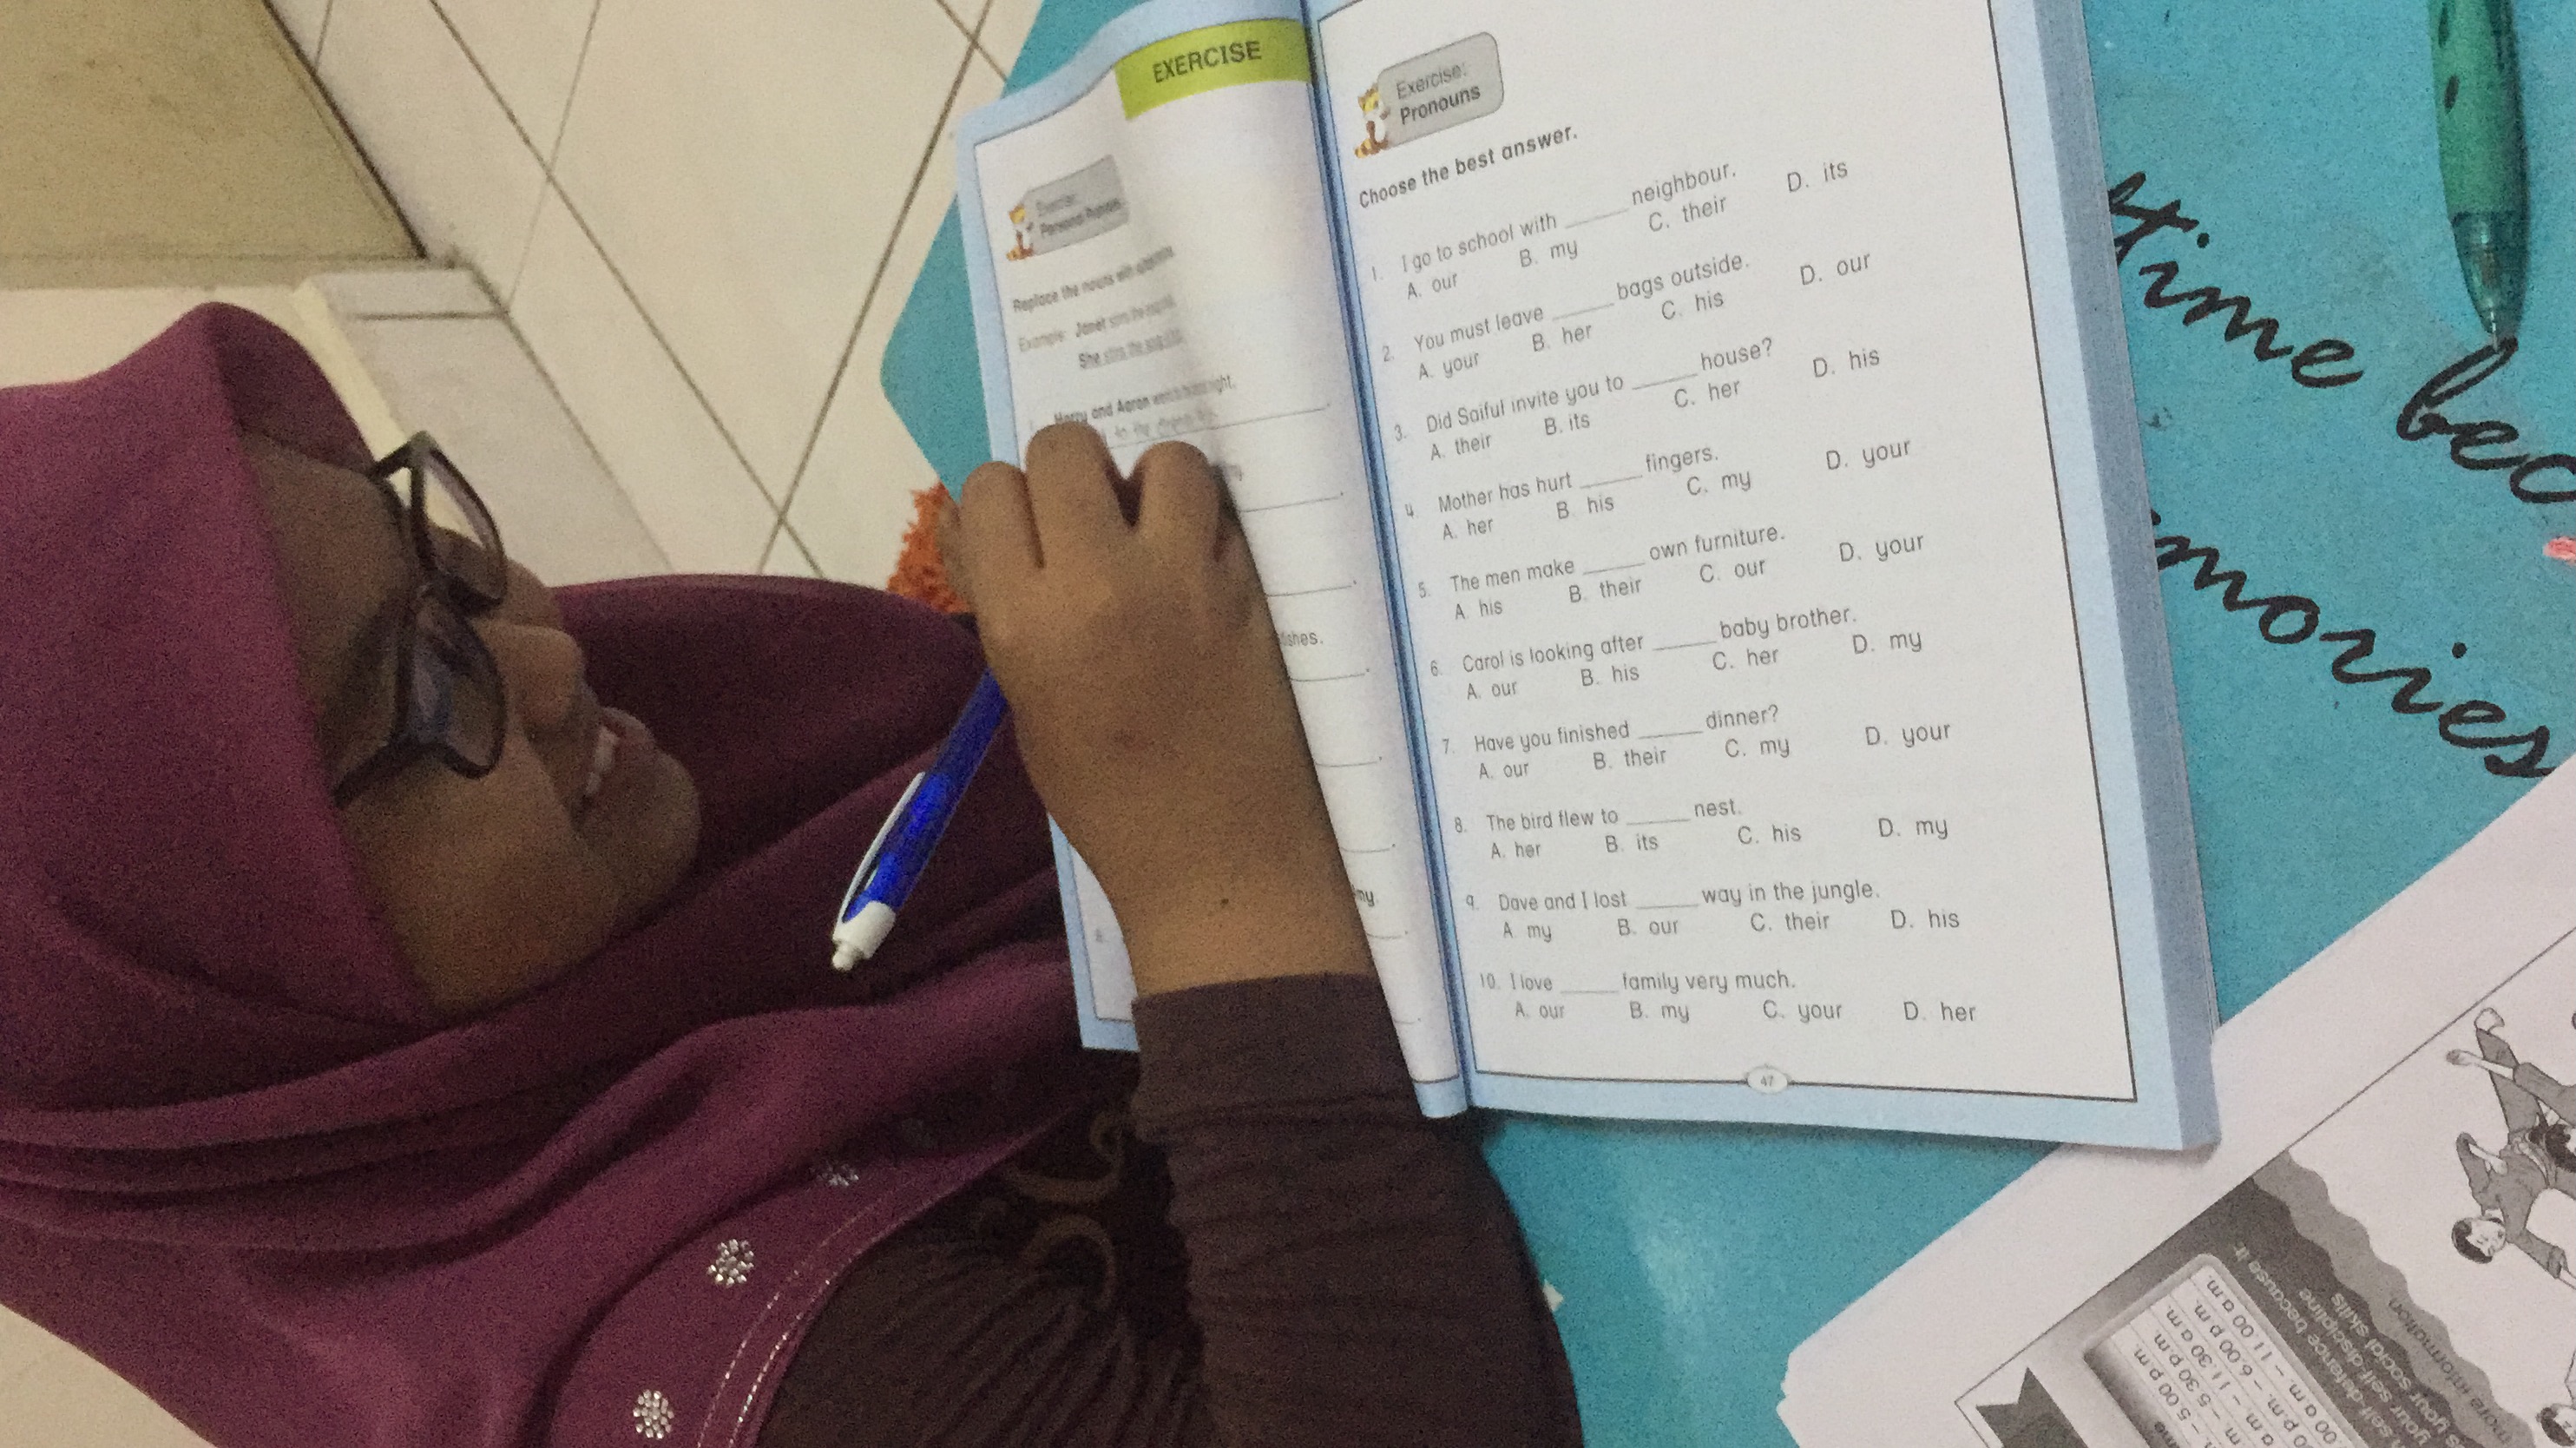 EXERCISE
Exercise:
Personal Pronouns
Replace the nouns with
Example: Janet stirs the
She stirs the
Harry and Aaron
ishes.
my.
Exercise:
Pronouns
Choose the best answer.
1. I go to school with ______ neighbour.
A. our B. my C. their D. its
2. You must leave ______ bags outside.
A. your B. her C. his D. our
3. Did Saiful invite you to ______ house?
A. their B. its C. her D. his
4. Mother has hurt ______ fingers.
A. her B. his C. my D. your
5. The men make ______ own furniture.
A. his B. their C. our D. your
6. Carol is looking after ______ baby brother.
A. our B. his C. her D. my
7. Have you finished ______ dinner?
A. our B. their C. my D. your
8. The bird flew to ______ nest.
A. her B. its C. his D. my
9. Dave and I lost ______ way in the jungle.
A. my B. our C. their D. his
10. I love ______ family very much.
A. our B. my C. your D. her
47
time bec
mories
self-defence because it
your self-discipline
s your social skills
more information
00 a.m. – 11.00 a.m.
0 p.m. – 6.00 p.m.
a.m. – 11.30 a.m.
m. – 5.30 p.m.
– 5.00 p.m.